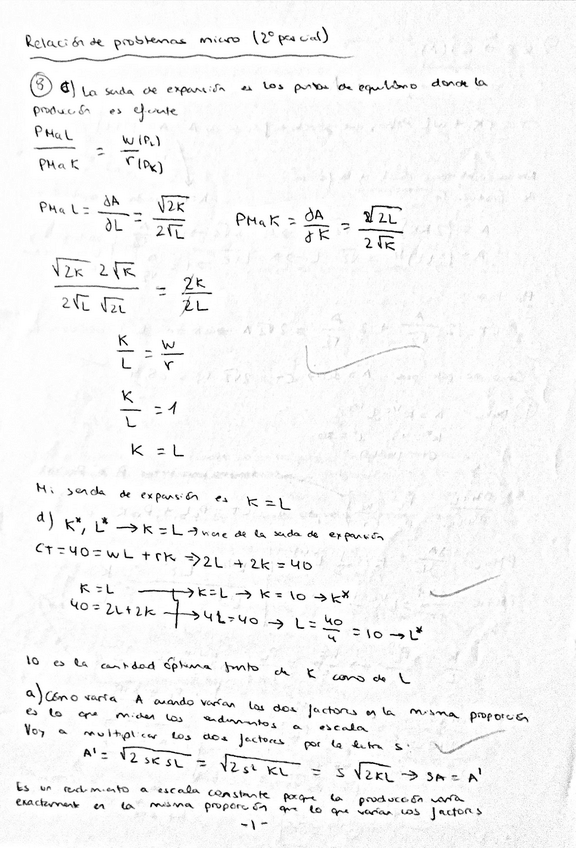 Relación de problemas micro (2º parcial)
⑧ c) La senda de expansión es los puntos de equilibrio donde la
producción es eficiente
PMaL / PMaK = W(PL) / r(PK)
PMaL = ∂A/∂L = √2K / 2√L   PMaK = ∂A/∂K = √2L / 2√K
√2K 2√K / 2√L √2L = 2K / 2L
K/L = W/r
K/L = 1
K = L
Mi senda de expansión es K = L
d) K*, L* → K = L → viene de la senda de expansión
CT = 40 = WL + rK ⇒ 2L + 2K = 40
K = L → K = L → K = 10 → K*
40 = 2L + 2K → 4L = 40 → L = 40/4 = 10 → L*
10 es la cantidad óptima tanto de K como de L
a) Cómo varía A cuando varían los dos factores en la misma proporción
es lo que miden los rendimientos a escala
Voy a multiplicar los dos factores por la letra s:
A' = √2 sK sL = √2 s² KL = s √2KL → sA = A'
Es un rendimiento a escala constante porque la producción varía
exactamente en la misma proporción que lo que varían los factores
-1-